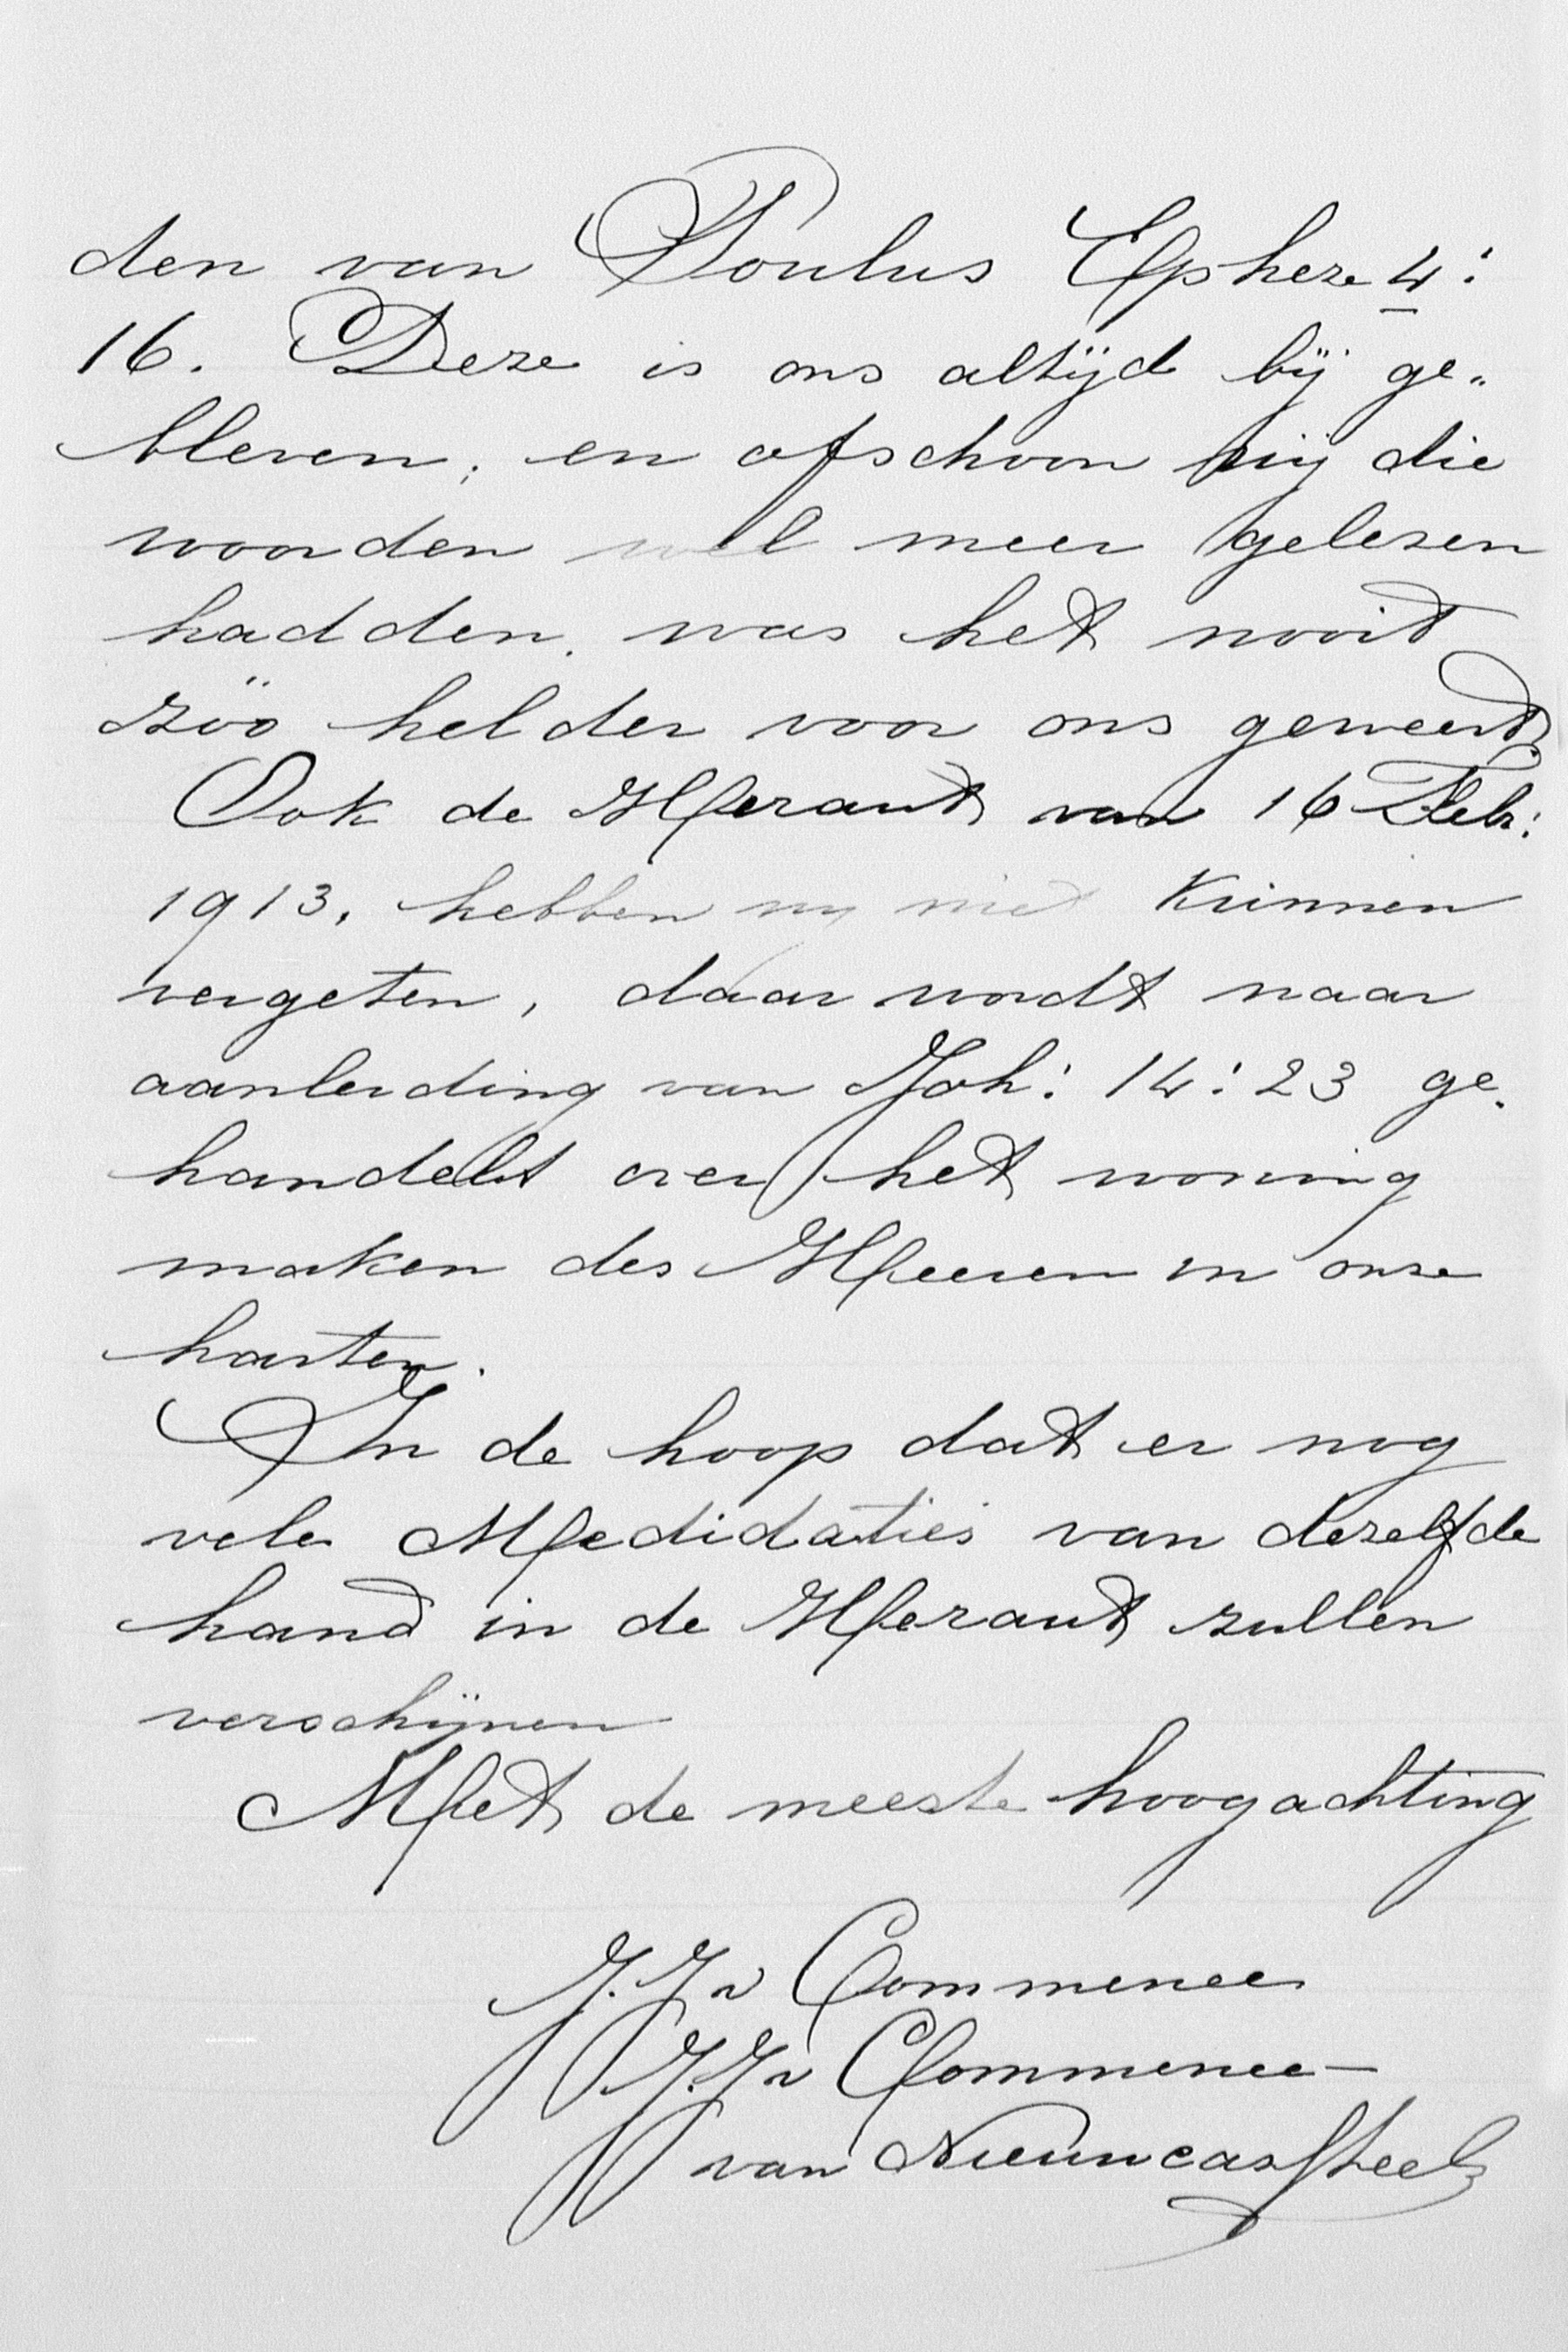 den van Poulus Epheze 4:
16. Deze is ons altijd bij ge„
bleven; en ofschoon wij die
woorden wel meer gelezen
hadden, was het nooit
zóó helder voor ons geweest.
Ook de Heraut van 16 Febr:
1913, hebben wy niet kunnen
vergeten, daar wordt naar
aanleiding van Joh: 14:23 ge-
handelt over het woning
maken des Heeren in onze
harten.
In de hoop dat er nog
vele Medidaties van dezelfde
hand in de Heraut zullen
verschijnen
Met de meeste hoogachting
J. J. v Commenee
J. J. v Commenee—
van Nieuwcasteel